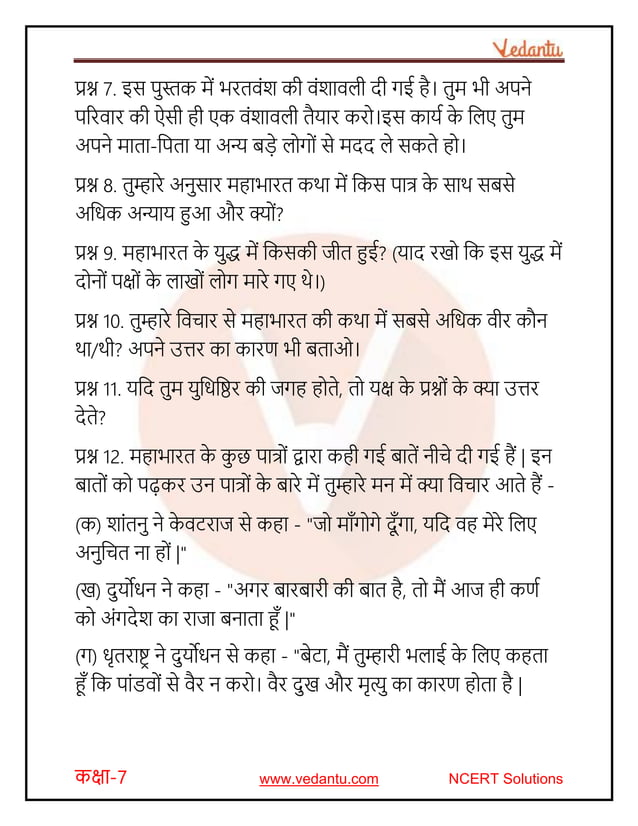 Vedantu
प्रश्न 7. इस पुस्तक में भरतवंश की वंशावली दी गई है। तुम भी अपने
परिवार की ऐसी ही एक वंशावली तैयार करो।इस कार्य के लिए तुम
अपने माता-पिता या अन्य बड़े लोगों से मदद ले सकते हो।
प्रश्न 8. तुम्हारे अनुसार महाभारत कथा में किस पात्र के साथ सबसे
अधिक अन्याय हुआ और क्यों?
प्रश्न 9. महाभारत के युद्ध में किसकी जीत हुई? (याद रखो कि इस युद्ध में
दोनों पक्षों के लाखों लोग मारे गए थे।)
प्रश्न 10. तुम्हारे विचार से महाभारत की कथा में सबसे अधिक वीर कौन
था/थी? अपने उत्तर का कारण भी बताओ।
प्रश्न 11. यदि तुम युधिष्ठिर की जगह होते, तो यक्ष के प्रश्नों के क्या उत्तर
देते?
प्रश्न 12. महाभारत के कुछ पात्रों द्वारा कही गई बातें नीचे दी गई हैं | इन
बातों को पढ़कर उन पात्रों के बारे में तुम्हारे मन में क्या विचार आते हैं -
(क) शांतनु ने केवटराज से कहा - "जो माँगोगे दूँगा, यदि वह मेरे लिए
अनुचित ना हों |"
(ख) दुर्योधन ने कहा - "अगर बारबारी की बात है, तो मैं आज ही कर्ण
को अंगदेश का राजा बनाता हूँ |"
(ग) धृतराष्ट्र ने दुर्योधन से कहा - "बेटा, मैं तुम्हारी भलाई के लिए कहता
हूँ कि पांडवों से वैर न करो। वैर दुख और मृत्यु का कारण होता है |
कक्षा-7 www.vedantu.com NCERT Solutions